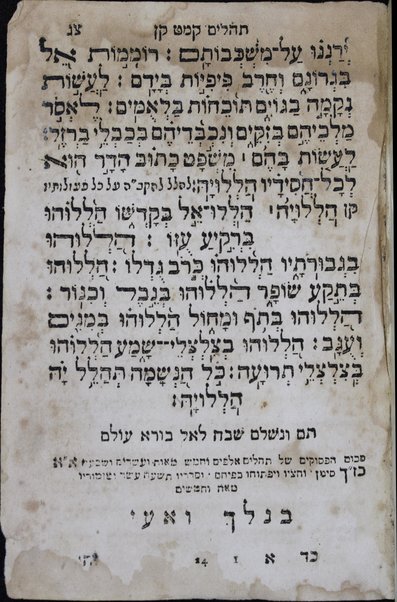 תהלים קמט קן צג
יְרַנְּנוּ עַל־מִשְׁכְּבוֹתָם׃ רוֹמְמוֹת אֵל
בִּגְרוֹנָם וְחֶרֶב פִּיפִיּוֹת בְּיָדָם׃ לַעֲשׂוֹת
נְקָמָה בַגּוֹיִם תּוֹכֵחוֹת בַּלְאֻמִּים׃ לֶאְסֹר
מַלְכֵיהֶם בְּזִקִּים וְנִכְבְּדֵיהֶם בְּכַבְלֵי בַרְזֶל׃
לַעֲשׂוֹת בָּהֶם מִשְׁפָּט כָּתוּב הָדָר הוּא
לְכָל־חֲסִידָיו הַלְלוּיָהּ׃ להלל להקב״ה על כל פעולותיו
קן הַלְלוּיָהּ הַלְלוּ־אֵל בְּקָדְשׁוֹ הַלְלוּהוּ
בִּרְקִיעַ עֻזּוֹ׃ הַלְלוּהוּ
בִגְבוּרֹתָיו הַלְלוּהוּ כְּרֹב גֻּדְלוֹ׃ הַלְלוּהוּ
בְּתֵקַע שׁוֹפָר הַלְלוּהוּ בְּנֵבֶל וְכִנּוֹר׃
הַלְלוּהוּ בְּתֹף וּמָחוֹל הַלְלוּהוּ בְּמִנִּים
וְעֻגָב׃ הַלְלוּהוּ בְצִלְצְלֵי־שָׁמַע הַלְלוּהוּ
בְּצִלְצְלֵי תְרוּעָה׃ כֹּל הַנְּשָׁמָה תְּהַלֵּל יָהּ
הַלְלוּיָהּ׃
תם ונשלם שבח לאל בורא עולם
סכום הפסוקים של תהלים אלפים וחמש מאות ועשרים ושבעה א״א
כז״ך סימן וחציו ויפתוהו בפיהם וסדריו תשעה עשר ומזמוריו
מאה וחמשים
בנלך ואעי
כד א 1 24